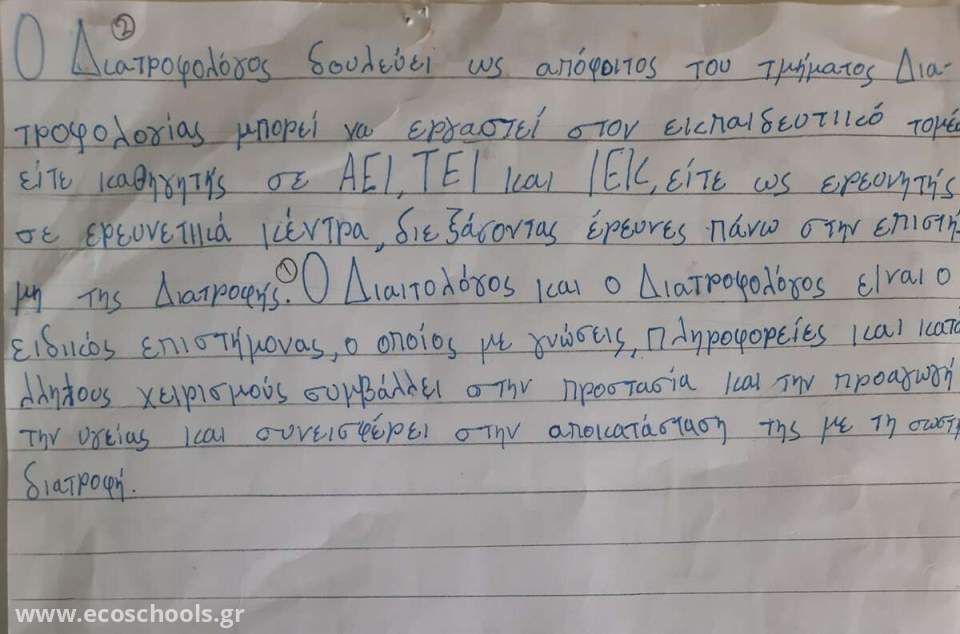 ②
Ο Διατροφολόγος δουλεύει ως απόφοιτος του τμήματος Δια-
τροφολογίας μπορεί να εργαστεί στον εκπαιδευτικό τομέα
είτε καθηγητής σε ΑΕΙ, ΤΕΙ και ΙΕΚ, είτε ως ερευνητής
σε ερευνετικά κέντρα, διεξάσοντας έρευνες πάνω στην επιστή-
μη της Διατροφής. ① Ο Διαιτολόγος και ο Διατροφολόγος είναι ο
ειδικός επιστήμονας, ο οποίος με γνώσεις, πληροφορείες και κατά
λληλους χειρισμούς συμβάλλει στην προστασία και την προαγωγή
την υγείας και συνεισφέρει στην αποκατάσταση της με τη σωστή
διατροφή.
www.ecoschools.gr